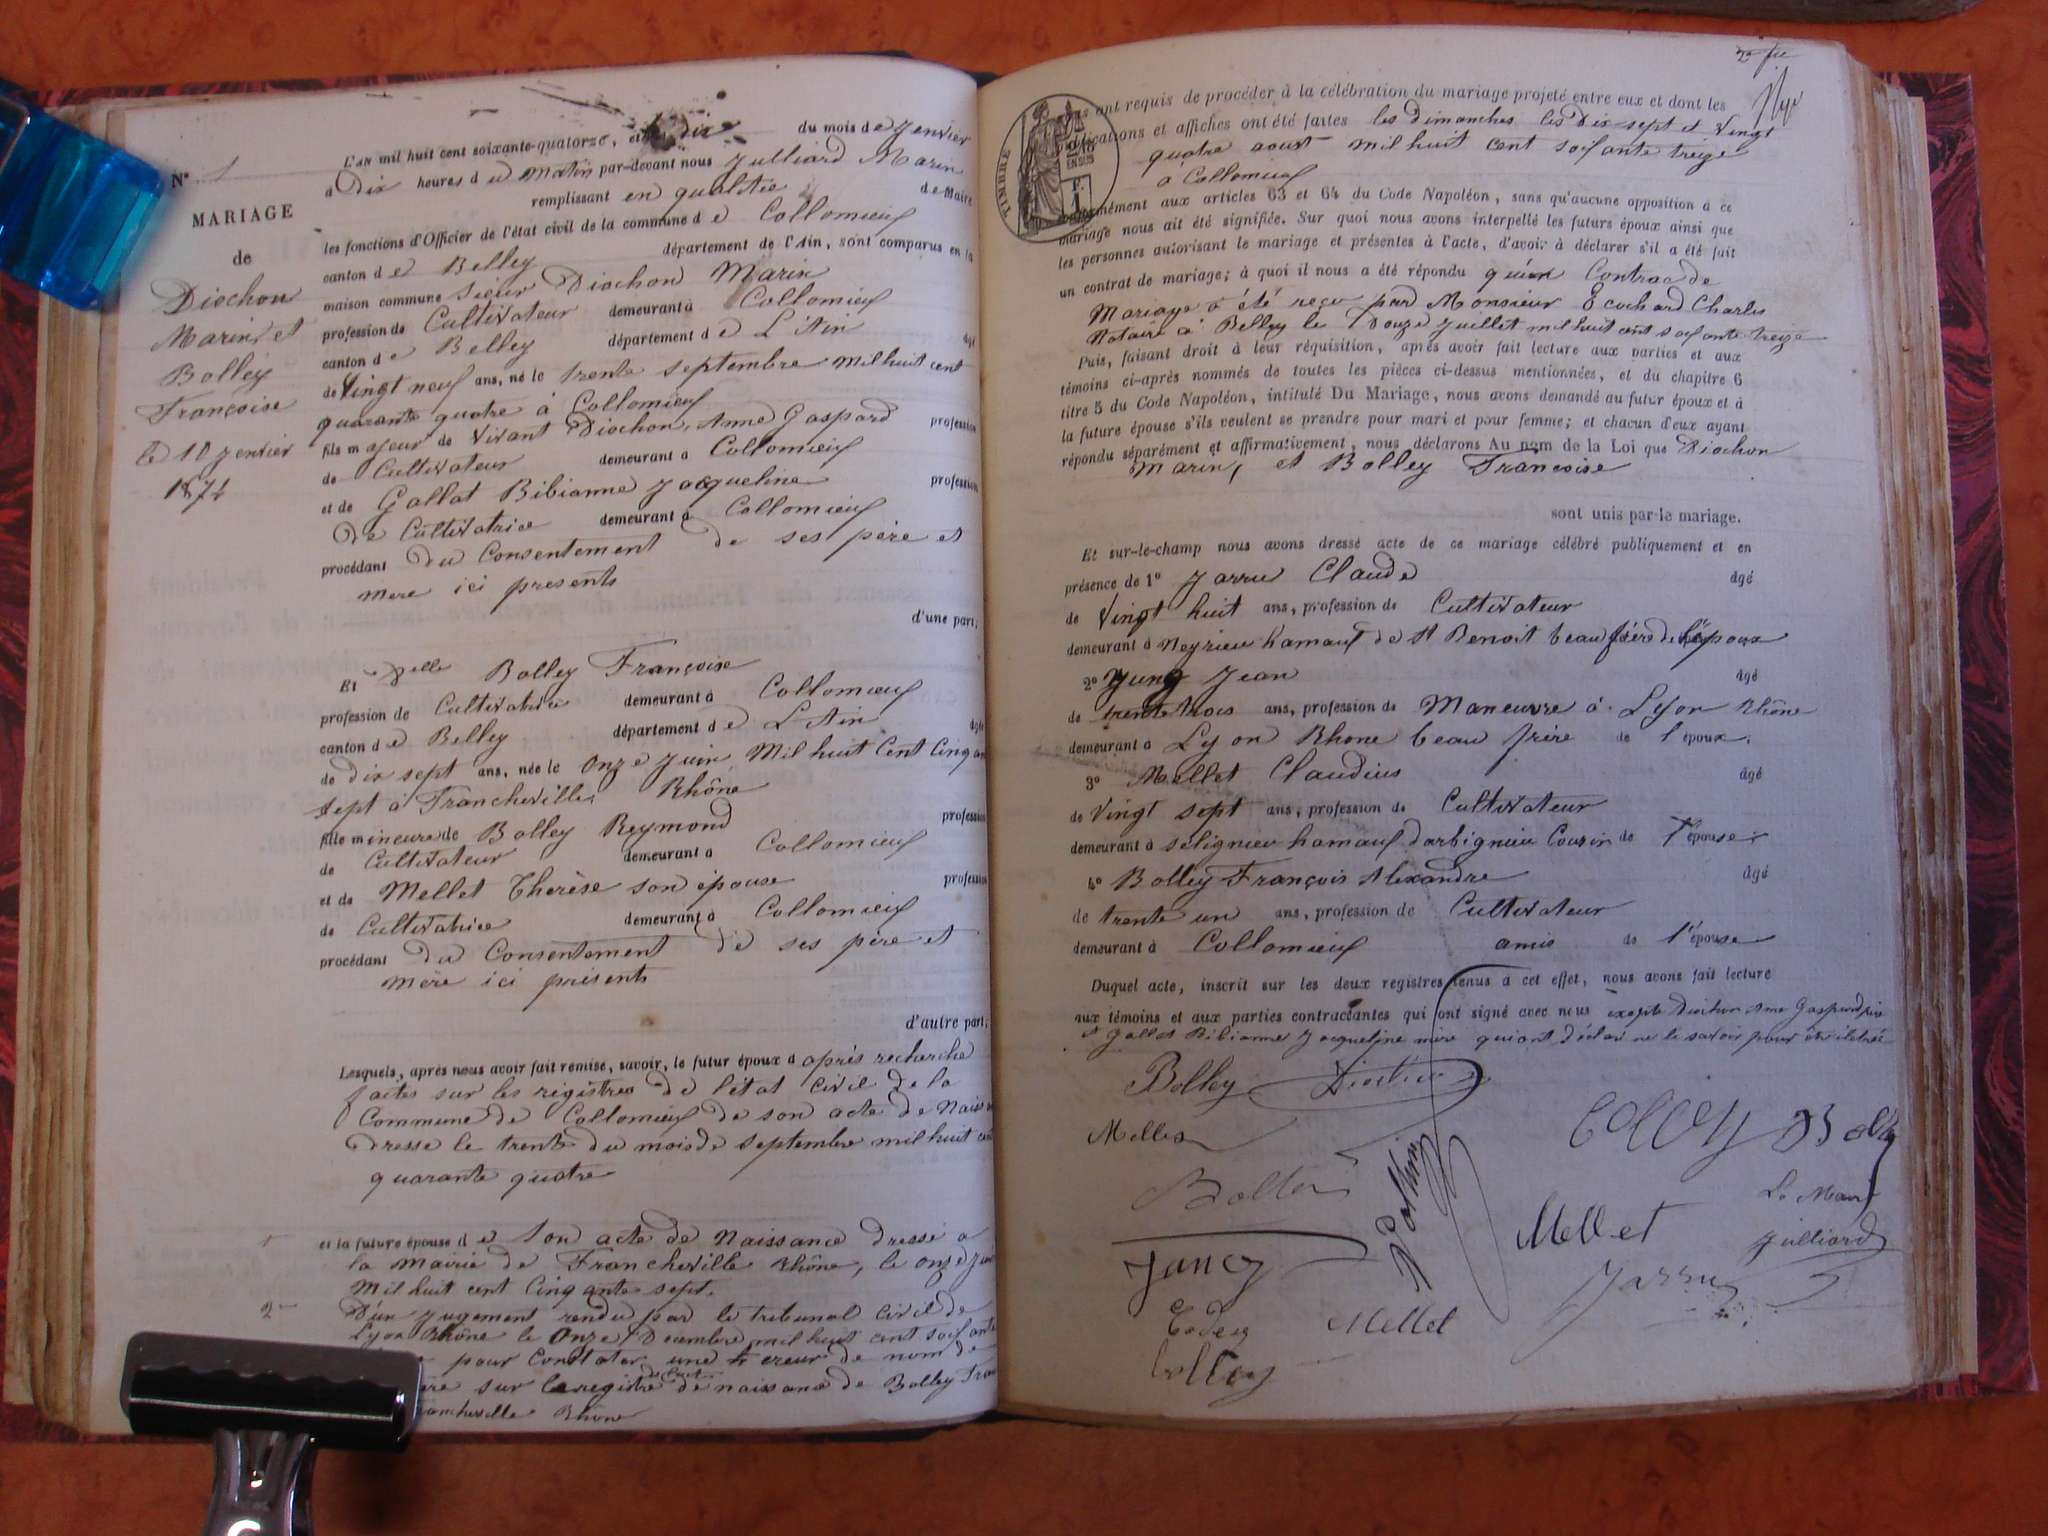 N° 1
MARIAGE
de
Diochon
Marin et
Bolley
Françoise
le 10 Janvier
1874
L'an mil huit cent soixante-quatorze, et le dix du mois de Janvier
à Dix heures du Matin par-devant nous Julliard Marin
remplissant en qualitée de Maire
les fonctions d'Officier de l'état civil de la commune de Collomieux
canton de Belley département de l'Ain, sont comparus en la
maison commune Sieur Diochon Marin
profession de Cultivateur demeurant à Collomieux
canton de Belley département de L'Ain âgé
de Vingt neuf ans, né le trente septembre mil huit cent
quarante quatre à Collomieux
fils majeur de Vivant Diochon, Ame Gaspard profession
de Cultivateur demeurant à Collomieux
et de Gallat Bibianne Jacqueline profession
de Cultivatrice demeurant à Collomieux
procédant du Consentement de ses père et
mere ici presents
d'une part;
Et Delle Bolley Françoise
profession de Cultivatrice demeurant à Collomieux
canton de Belley département de L'Ain âgée
de dix sept ans, née le onze Juin Mil huit Cent Cinquan
sept à Francheville Rhône
fille mineure de Bolley Reymond profession
de Cultivateur demeurant à Collomieux
et de Mellet Therèse son épouse profession
de Cultivatrice demeurant à Collomieux
procédant du Consentement de ses père et
mère ici présents
d'autre part;
Lesquels, après nous avoir fait remise, savoir, le futur époux d après recherche
faites sur les registres de l'état Civil de la
Commune de Collomieux de son acte de Naiss
dresse le trente du mois de septembre mil huit cent
quarante quatre
1° et la future épouse de Son acte de Naissance dressé a
la Mairie de Francheville Rhône, le onze Juin
Mil huit cent Cinquante sept.
2° D'un Jugement rendu par le tribunal civil de
Lyon Rhône le Onze Decembre mil huit cent soixante
pour Constater une erreur de nom de
sur le registre de naissance de Bolley Fran
Rhône
2e
TIMBRE
ont requis de procéder à la célébration du mariage projeté entre eux et dont les
publications et affiches ont été faites les dimanches les Dix sept et Vingt
quatre aout mil huit cent soixante treize
à Collomieux
conformément aux articles 63 et 64 du Code Napoléon, sans qu'aucune opposition à ce
mariage nous ait été signifiée. Sur quoi nous avons interpellé les futurs époux ainsi que
les personnes autorisant le mariage et présentes à l'acte, d'avoir à déclarer s'il a été fait
un contrat de mariage; à quoi il nous a été répondu qu'un Contrac de
Mariage a été reçu par Monsieur Ecochard Charles
Notaire à Belley le Douze Juillet mil huit cent soixante treize
Puis, faisant droit à leur réquisition, après avoir fait lecture aux parties et aux
témoins ci-après nommés de toutes les pièces ci-dessus mentionnées, et du chapitre 6
titre 5 du Code Napoléon, intitulé Du Mariage, nous avons demandé au futur époux et à
la future épouse s'ils veulent se prendre pour mari et pour femme; et chacun d'eux ayant
répondu séparément et affirmativement, nous déclarons Au nom de la Loi que Diochon
Marin, et Bolley Françoise
sont unis par le mariage.
Et sur-le-champ nous avons dressé acte de ce mariage célébré publiquement et en
présence de 1° Jarru Claude âgé
de Vingt huit ans, profession de Cultivateur
demeurant à Neyrieu hamaux de St Benoit beau frère de l'époux
2° Yung Jean âgé
de trente trois ans, profession de Maneuvre à Lyon Rhône
demeurant à Lyon Rhone beau frère de l'époux,
3° Mellet Claudius âgé
de Vingt sept ans, profession de Cultivateur
demeurant à sélignieu hamaux d'arbignieu Cousin de l'épouse
4° Bolley François Alexandre âgé
de trente un ans, profession de Cultivateur
demeurant à Collomieux amie de l'épouse
Duquel acte, inscrit sur les deux registres tenus à cet effet, nous avons fait lecture
aux témoins et aux parties contractantes qui ont signé avec nous excepte Diochon Ame Gaspard père
et Gallat Bibianne Jacqueline mère qui ont déclaré ne le savoir pour être iletrés
Bolley
Mellet
Mellet
Le Maire
Julliard
Jarru
Mellet
bolley